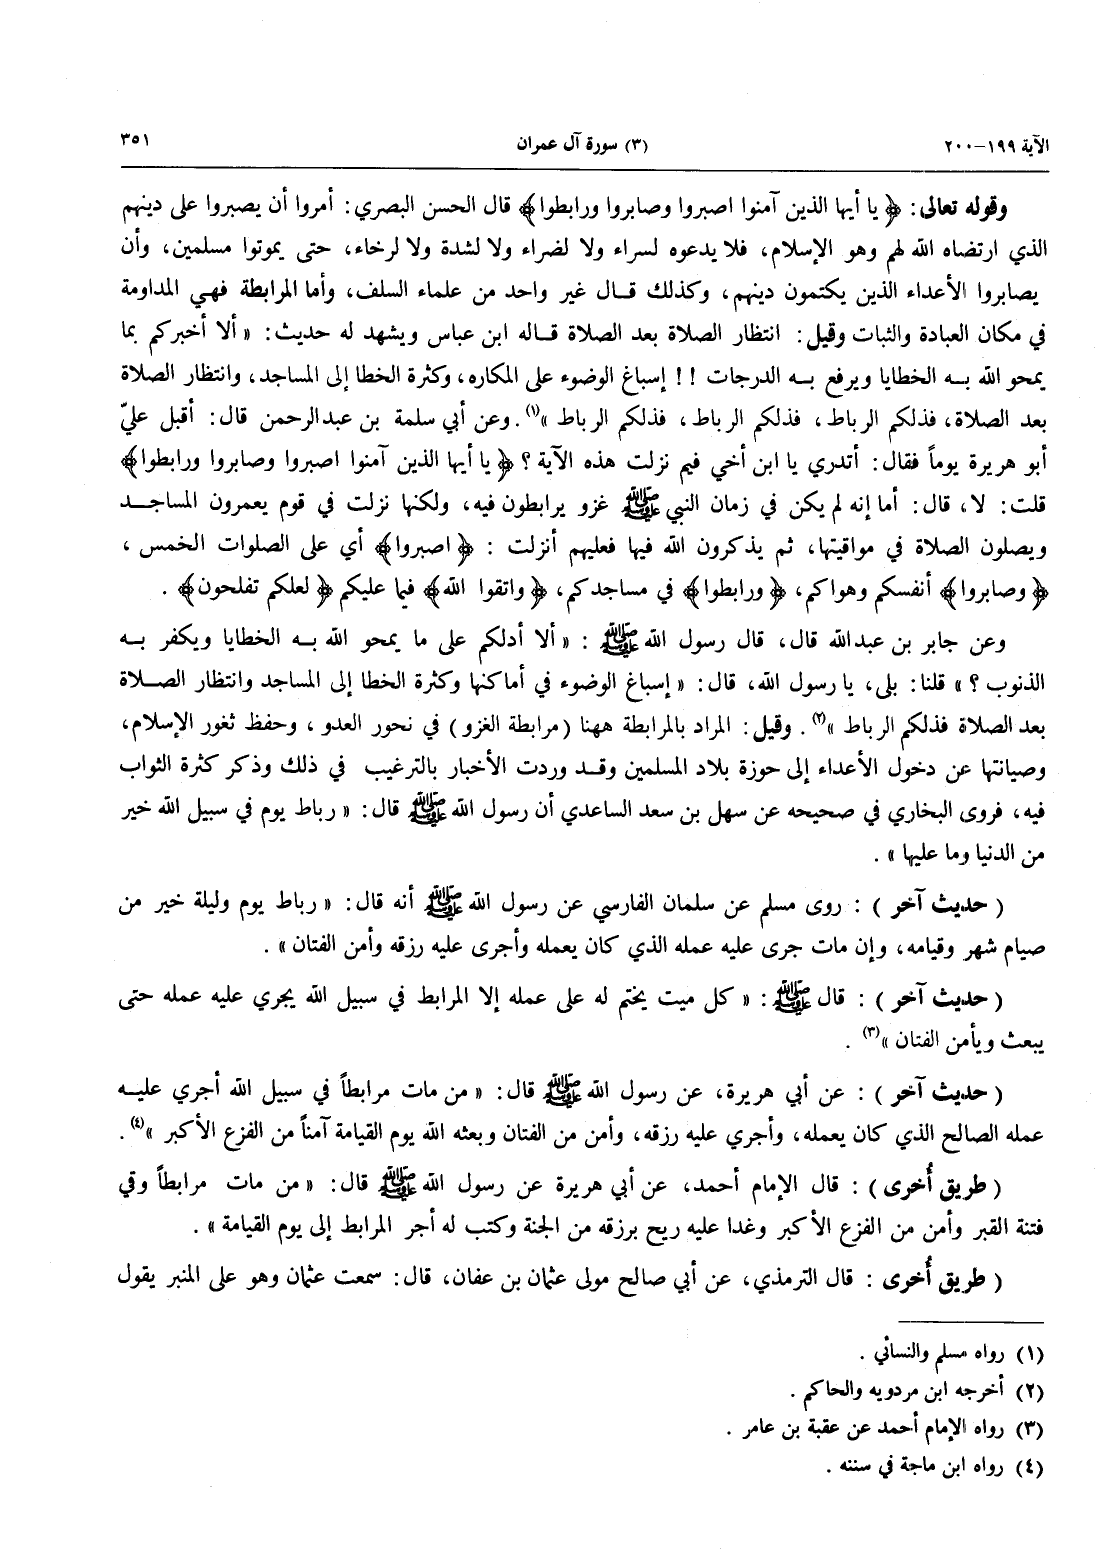 الآية ١٩٩-٢٠٠
(٣) سورة آل عمران
٣٥١
وقوله تعالى: ﴿يا أيها الذين آمنوا اصبروا وصابروا ورابطوا﴾ قال الحسن البصري: أمروا أن يصبروا على دينهم
الذي ارتضاه الله لهم وهو الإسلام، فلا يدعوه لسراء ولا لضراء ولا لشدة ولا لرخاء، حتى يموتوا مسلمين، وأن
يصابروا الأعداء الذين يكتمون دينهم، وكذلك قال غير واحد من علماء السلف، وأما المرابطة فهي المداومة
في مكان العبادة والثبات وقيل: انتظار الصلاة بعد الصلاة قاله ابن عباس ويشهد له حديث: « ألا أخبركم بما
يمحو الله به الخطايا ويرفع به الدرجات !! إسباغ الوضوء على المكاره، وكثرة الخطا إلى المساجد، وانتظار الصلاة
بعد الصلاة، فذلكم الرباط، فذلكم الرباط، فذلكم الرباط »(١). وعن أبي سلمة بن عبدالرحمن قال: أقبل عليّ
أبو هريرة يوماً فقال: أتدري يا ابن أخي فيم نزلت هذه الآية؟ ﴿يا أيها الذين آمنوا اصبروا وصابروا ورابطوا﴾
قلت: لا، قال: أما إنه لم يكن في زمان النبي ﷺ غزو يرابطون فيه، ولكنها نزلت في قوم يعمرون المساجد
ويصلون الصلاة في مواقيتها، ثم يذكرون الله فيها فعليهم أنزلت : ﴿اصبروا﴾ أي على الصلوات الخمس ،
﴿وصابروا﴾ أنفسكم وهواكم، ﴿ورابطوا﴾ في مساجدكم، ﴿واتقوا الله﴾ فيما عليكم ﴿لعلكم تفلحون﴾ .
وعن جابر بن عبدالله قال، قال رسول الله ﷺ : « ألا أدلكم على ما يمحو الله به الخطايا ويكفر به
الذنوب ؟ » قلنا: بلى، يا رسول الله، قال: « إسباغ الوضوء في أماكنها وكثرة الخطا إلى المساجد وانتظار الصلاة
بعد الصلاة فذلكم الرباط »(٢) . وقيل: المراد بالمرابطة ههنا (مرابطة الغزو) في نحور العدو ، وحفظ ثغور الإسلام،
وصيانتها عن دخول الأعداء إلى حوزة بلاد المسلمين وقد وردت الأخبار بالترغيب في ذلك وذكر كثرة الثواب
فيه، فروى البخاري في صحيحه عن سهل بن سعد الساعدي أن رسول الله ﷺ قال: « رباط يوم في سبيل الله خير
من الدنيا وما عليها » .
( حديث آخر ) : روى مسلم عن سلمان الفارسي عن رسول الله ﷺ أنه قال: « رباط يوم وليلة خير من
صيام شهر وقيامه، وإن مات جرى عليه عمله الذي كان يعمله وأجرى عليه رزقه وأمن الفتان » .
( حديث آخر ) : قال ﷺ : « كل ميت يختم له على عمله إلا المرابط في سبيل الله يجري عليه عمله حتى
يبعث ويأمن الفتان »(٣) .
( حديث آخر ) : عن أبي هريرة، عن رسول الله ﷺ قال: « من مات مرابطاً في سبيل الله أجري عليه
عمله الصالح الذي كان يعمله، وأجري عليه رزقه، وأمن من الفتان وبعثه الله يوم القيامة آمناً من الفزع الأكبر »(٤).
( طريق أُخرى ) : قال الإمام أحمد، عن أبي هريرة عن رسول الله ﷺ قال: « من مات مرابطاً وقي
فتنة القبر وأمن من الفزع الأكبر وغدا عليه ريح برزقه من الجنة وكتب له أجر المرابط إلى يوم القيامة » .
( طريق أُخرى : قال الترمذي، عن أبي صالح مولى عثمان بن عفان، قال: سمعت عثمان وهو على المنبر يقول
(١) رواه مسلم والنسائي .
(٢) أخرجه ابن مردويه والحاكم .
(٣) رواه الإمام أحمد عن عقبة بن عامر .
(٤) رواه ابن ماجة في سننه .